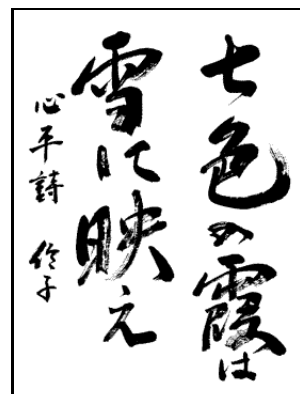 七色の霞は
雪に映え
心平詩 伶子